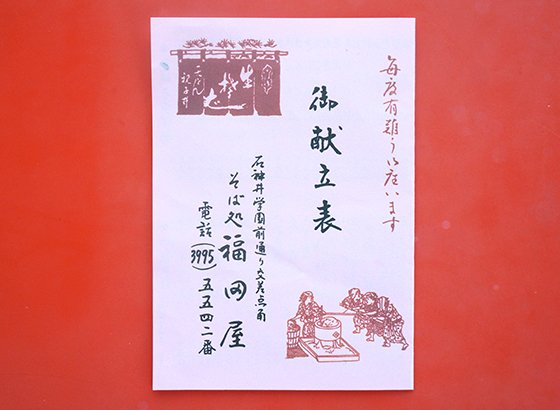 毎度有難う御座います
御献立表
石神井学園前通り交差点角
そば処福田屋
電話(3995)五五四二番
生そば